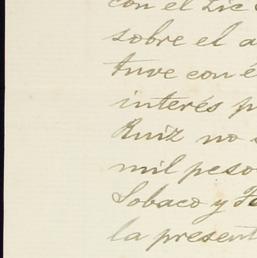 con el Lic
sobre el a
tuve con é
interés p
Ruiz no
mil peso
Sobaco y F
la present